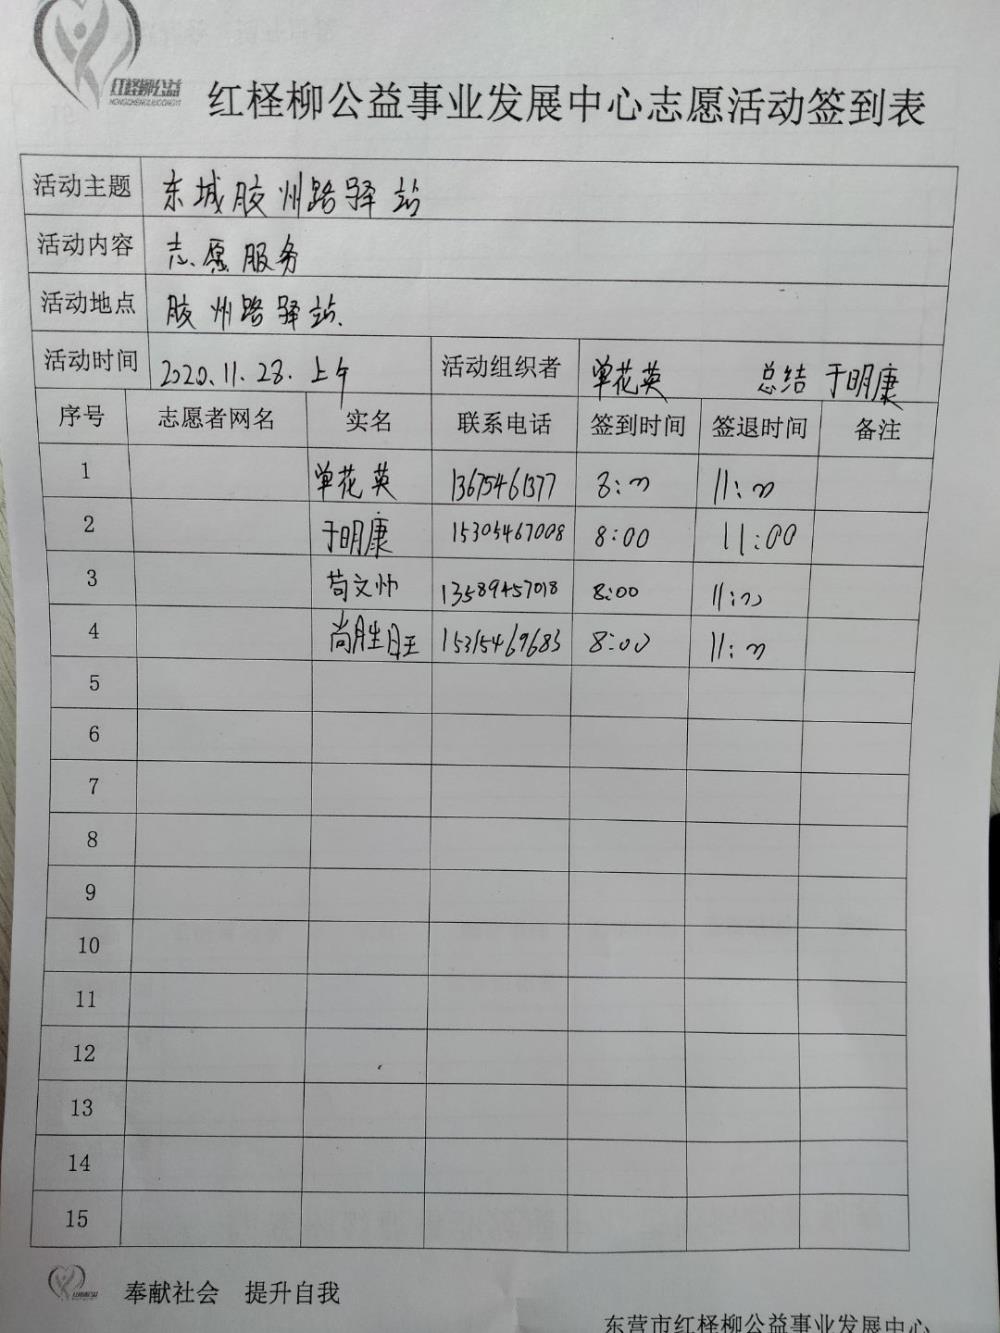 红柽柳公益
HONGCHENGLIUGONGYI
红柽柳公益事业发展中心志愿活动签到表
活动主题 东城胶州路驿站
活动内容 志愿服务
活动地点 胶州路驿站
活动时间 2020.11.28.上午 活动组织者 单花英 总结 于明康
序号 志愿者网名 实名 联系电话 签到时间 签退时间 备注
1 单花英 13675461377 8:00 11:00
2 于明康 15305467008 8:00 11:00
3 苟文帅 13589457018 8:00 11:00
4 尚胜旺 15315469683 8:00 11:00
5
6
7
8
9
10
11
12
13
14
15
奉献社会 提升自我
东营市红柽柳公益事业发展中心